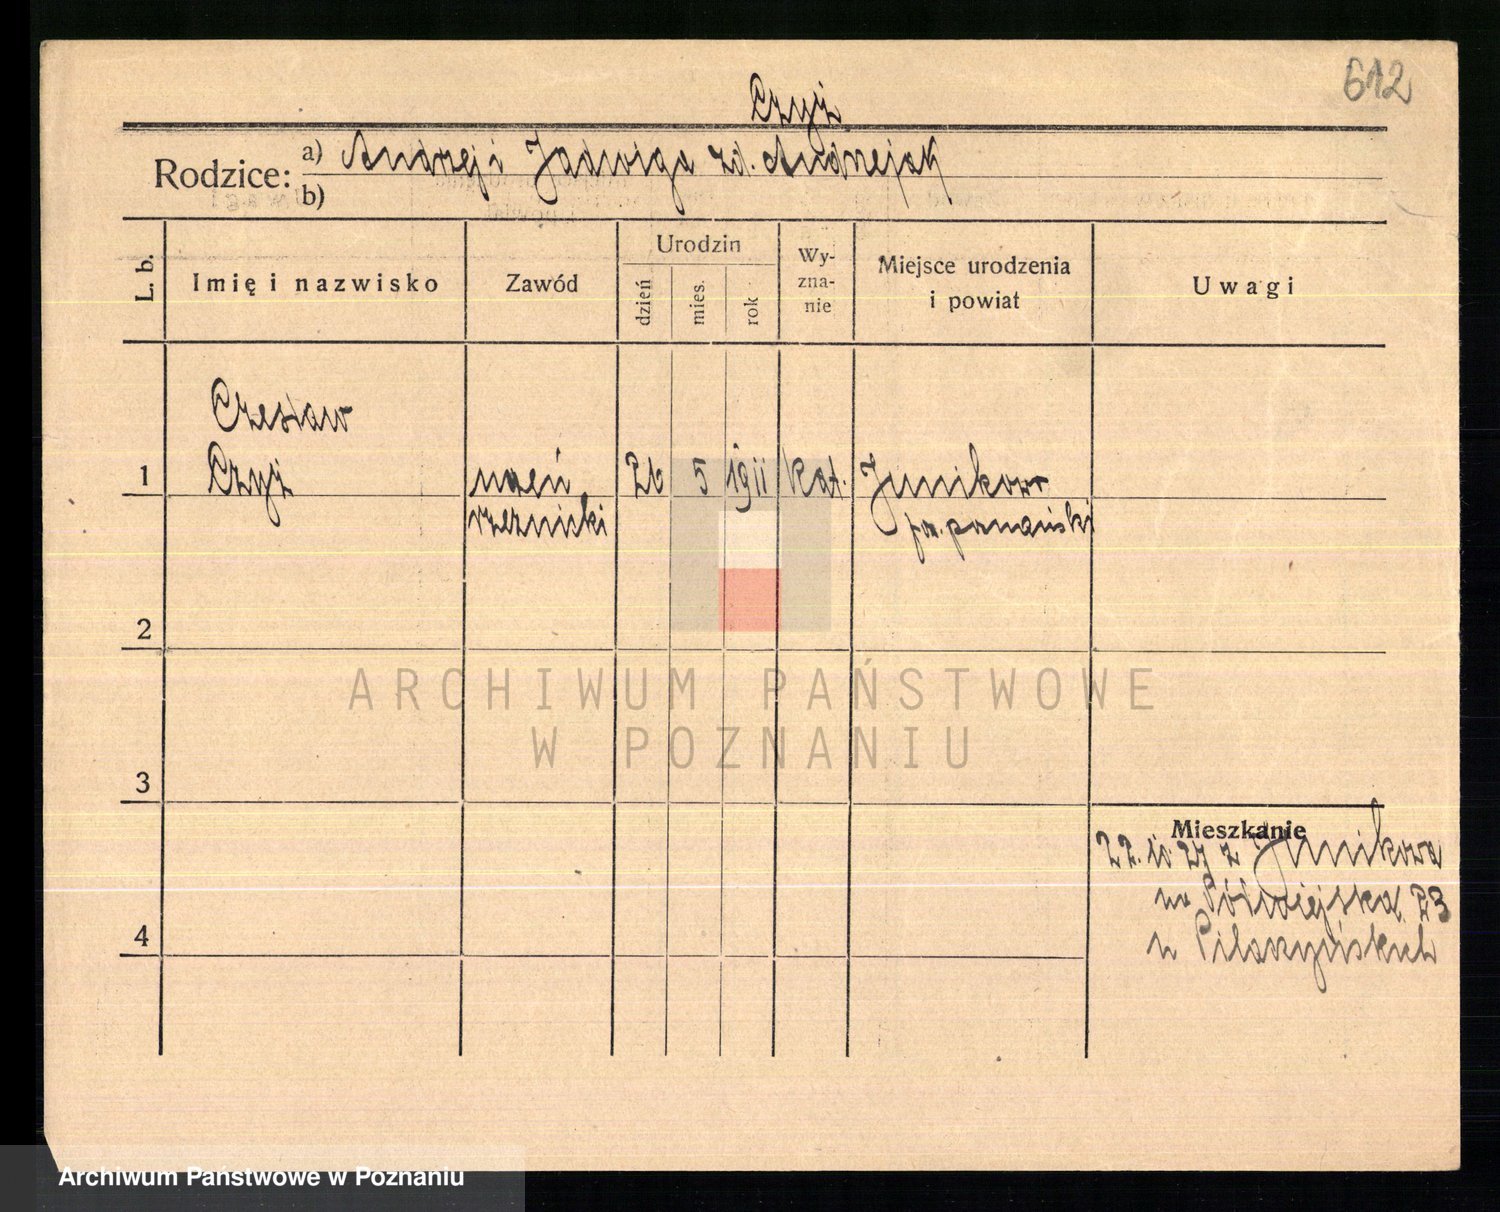 612
Czyż
Rodzice: a) Andrzej i Jadwiga zd. Andrzejak
b)
L. b. Imię i nazwisko Zawód Urodzin dzień mies. rok Wyznanie Miejsce urodzenia i powiat Uwagi
Czesław
1 Czyż uczeń 26 5 1911 kat. Junikowo
rzeźnicki po. poznański
2
ARCHIWUM PAŃSTWOWE
W POZNANIU
3
Mieszkanie
22. 10 27 z Junikowa
na Półwiejska 23
u
4
Archiwum Państwowe w Poznaniu